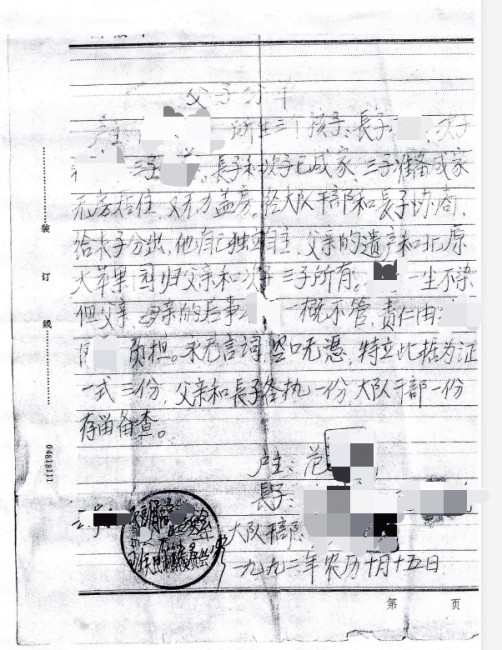 父子分单
户主 所生三个孩子、長子 、次子
三子 。長子和次子已成家、三子准备成家
无房短住,又无力盖房,经大队干部和長子协商,
给長子分出,他自己独立自主,父亲的遗产和北原
大苹果园归父亲和次子三子所有。 一尘不染
但父亲、母亲的后事 一概不管,责仁由
负担。永无言词,空口无憑,特立此据为证
一式三份,父亲和長子各执一份大队干部一份
存留备查。
户主:范
長子:
大队干部:
一九九二年农历十月十五日
装
订
线
04818111
第 页